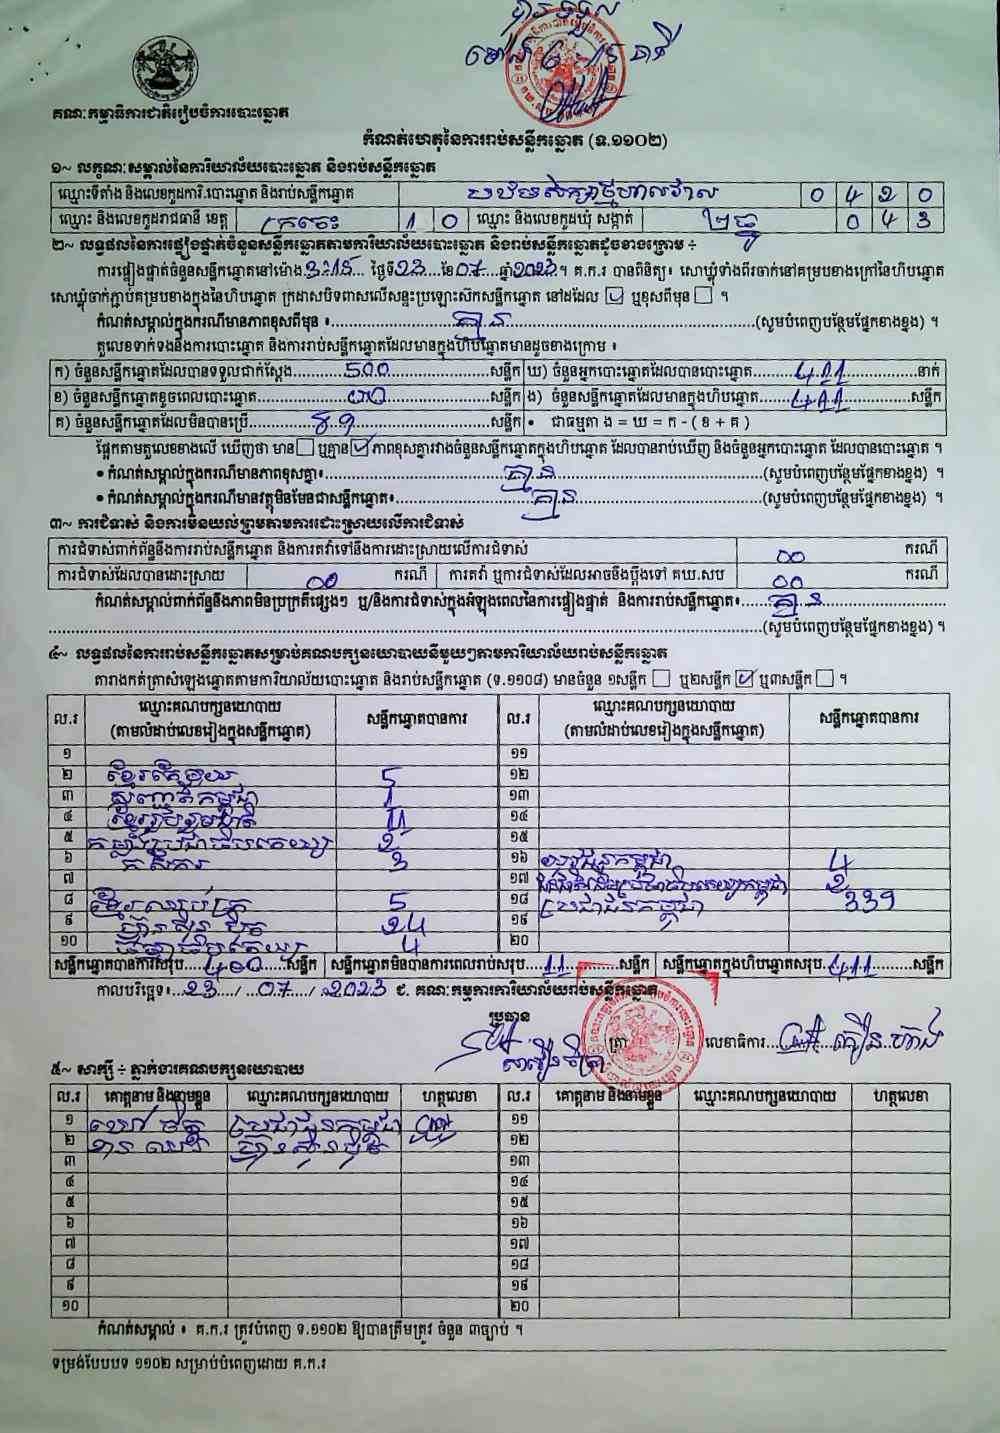 បានទទួល
ម៉ោង
នាទី
គណៈកម្មាធិការជាតិរៀបចំការបោះឆ្នោត
កំណត់ហេតុនៃការរាប់សន្លឹកឆ្នោត (ទ.១១០២)
១~ លក្ខណៈសម្គាល់នៃការិយាល័យបោះឆ្នោត និងរាប់សន្លឹកឆ្នោត
ឈ្មោះទីតាំង និងលេខកូដការិ.បោះឆ្នោត និងរាប់សន្លឹកឆ្នោត 0 4 2 0
ឈ្មោះ និងលេខកូដរាជធានី ខេត្ត ក្រចេះ 1 0 ឈ្មោះ និងលេខកូដឃុំ សង្កាត់ 0 4 3
២~ លទ្ធផលនៃការផ្ទៀងផ្ទាត់ចំនួនសន្លឹកឆ្នោតតាមការិយាល័យបោះឆ្នោត និងរាប់សន្លឹកឆ្នោតដូចខាងក្រោម ÷
ការផ្ទៀងផ្ទាត់ចំនួនសន្លឹកឆ្នោតនៅម៉ោង 3:15 ថ្ងៃទី 23 ខែ 07 ឆ្នាំ 2023។ គ.ក.រ បានពិនិត្យ៖ សោឃ្លុំទាំងពីរចាក់នៅគម្របខាងក្រៅនៃហិបឆ្នោត
សោឃ្លុំចាក់ភ្ជាប់គម្របខាងក្នុងនៃហិបឆ្នោត ក្រដាសបិទពាសលើសន្ទះប្រឡោះស៊កសន្លឹកឆ្នោត នៅដដែល ☑ ឬខុសពីមុន ☐ ។
កំណត់សម្គាល់ក្នុងករណីមានភាពខុសពីមុន ៖ គ្មាន (សូមបំពេញបន្ថែមផ្នែកខាងខ្នង) ។
តួលេខទាក់ទងនឹងការបោះឆ្នោត និងការរាប់សន្លឹកឆ្នោតដែលមានក្នុងហិបឆ្នោតមានដូចខាងក្រោម ៖
ក) ចំនួនសន្លឹកឆ្នោតដែលបានទទួលជាក់ស្តែង 500 សន្លឹក ឃ) ចំនួនអ្នកបោះឆ្នោតដែលបានបោះឆ្នោត 411 នាក់
ខ) ចំនួនសន្លឹកឆ្នោតខូចពេលបោះឆ្នោត 00 សន្លឹក ង) ចំនួនសន្លឹកឆ្នោតដែលមានក្នុងហិបឆ្នោត 411 សន្លឹក
គ) ចំនួនសន្លឹកឆ្នោតដែលមិនបានប្រើ 89 សន្លឹក • ជាធម្មតា ង = ឃ = ក - ( ខ + គ )
ផ្អែកតាមតួលេខខាងលើ ឃើញថា មាន ☐ ឬគ្មាន ☑ ភាពខុសគ្នារវាងចំនួនសន្លឹកឆ្នោតក្នុងហិបឆ្នោត ដែលបានរាប់ឃើញ និងចំនួនអ្នកបោះឆ្នោត ដែលបានបោះឆ្នោត ។
• កំណត់សម្គាល់ក្នុងករណីមានភាពខុសគ្នា៖ គ្មាន (សូមបំពេញបន្ថែមផ្នែកខាងខ្នង) ។
• កំណត់សម្គាល់ក្នុងករណីមានវត្ថុមិនមែនជាសន្លឹកឆ្នោត៖ គ្មាន (សូមបំពេញបន្ថែមផ្នែកខាងខ្នង) ។
៣~ ការជំទាស់ និងការមិនយល់ព្រមតាមការដោះស្រាយលើការជំទាស់
ការជំទាស់ពាក់ព័ន្ធនឹងការរាប់សន្លឹកឆ្នោត និងការតវ៉ាទៅនឹងការដោះស្រាយលើការជំទាស់ 00 ករណី
ការជំទាស់ដែលបានដោះស្រាយ 00 ករណី ការតវ៉ា ឬការជំទាស់ដែលអាចនឹងប្តឹងទៅ គឃ.សប 00 ករណី
កំណត់សម្គាល់ពាក់ព័ន្ធនឹងភាពមិនប្រក្រតីផ្សេងៗ ឬ/និងការជំទាស់ក្នុងអំឡុងពេលនៃការផ្ទៀងផ្ទាត់ និងការរាប់សន្លឹកឆ្នោត៖ គ្មាន
(សូមបំពេញបន្ថែមផ្នែកខាងខ្នង) ។
៤~ លទ្ធផលនៃការរាប់សន្លឹកឆ្នោតសម្រាប់គណបក្សនយោបាយនីមួយៗតាមការិយាល័យរាប់សន្លឹកឆ្នោត
តារាងកត់ត្រាសំឡេងឆ្នោតតាមការិយាល័យបោះឆ្នោត និងរាប់សន្លឹកឆ្នោត (ទ.១១០៨) មានចំនួន ១សន្លឹក ☐ ឬ២សន្លឹក ☑ ឬ៣សន្លឹក ☐ ។
ល.រ ឈ្មោះគណបក្សនយោបាយ (តាមលំដាប់លេខរៀងក្នុងសន្លឹកឆ្នោត) សន្លឹកឆ្នោតបានការ ល.រ ឈ្មោះគណបក្សនយោបាយ (តាមលំដាប់លេខរៀងក្នុងសន្លឹកឆ្នោត) សន្លឹកឆ្នោតបានការ
១ ១១
២ ខ្មែរតែមួយ 5 ១២
៣ សញ្ជាតិកម្ពុជា 1 ១៣
៤ ខ្មែររួបរួមជាតិ 11 ១៤
៥ កម្លាំងប្រជាធិបតេយ្យ 2 ១៥
៦ កសិករ 3 ១៦ យុវជនកម្ពុជា 4
៧ ១៧ 2
៨ ខ្មែរឈប់ក្រ 5 ១៨ ប្រជាជនកម្ពុជា 339
៩ ហ៊្វុនស៊ិនប៉ិច 24 ១៩
១០ ធម្មាធិបតេយ្យ 4 ២០
សន្លឹកឆ្នោតបានការសរុប 400 សន្លឹក សន្លឹកឆ្នោតមិនបានការពេលរាប់សរុប 11 សន្លឹក សន្លឹកឆ្នោតក្នុងហិបឆ្នោតសរុប 411 សន្លឹក
កាលបរិច្ឆេទ៖ 23 / 07 / 2023 ជ. គណៈកម្មការការិយាល័យរាប់សន្លឹកឆ្នោត
ប្រធាន
ត្រា លេខាធិការ
៥~ សាក្សី ÷ ភ្នាក់ងារគណបក្សនយោបាយ
ល.រ គោត្តនាម និងនាមខ្លួន ឈ្មោះគណបក្សនយោបាយ ហត្ថលេខា ល.រ គោត្តនាម និងនាមខ្លួន ឈ្មោះគណបក្សនយោបាយ ហត្ថលេខា
១ ប្រជាជនកម្ពុជា ១១
២ ហ៊្វុនស៊ិនប៉ិច ១២
៣ ១៣
៤ ១៤
៥ ១៥
៦ ១៦
៧ ១៧
៨ ១៨
៩ ១៩
១០ ២០
កំណត់សម្គាល់ ៖ គ.ក.រ ត្រូវបំពេញ ទ.១១០២ ឱ្យបានត្រឹមត្រូវ ចំនួន ៣ច្បាប់ ។
ទម្រង់បែបបទ ១១០២ សម្រាប់បំពេញដោយ គ.ក.រ